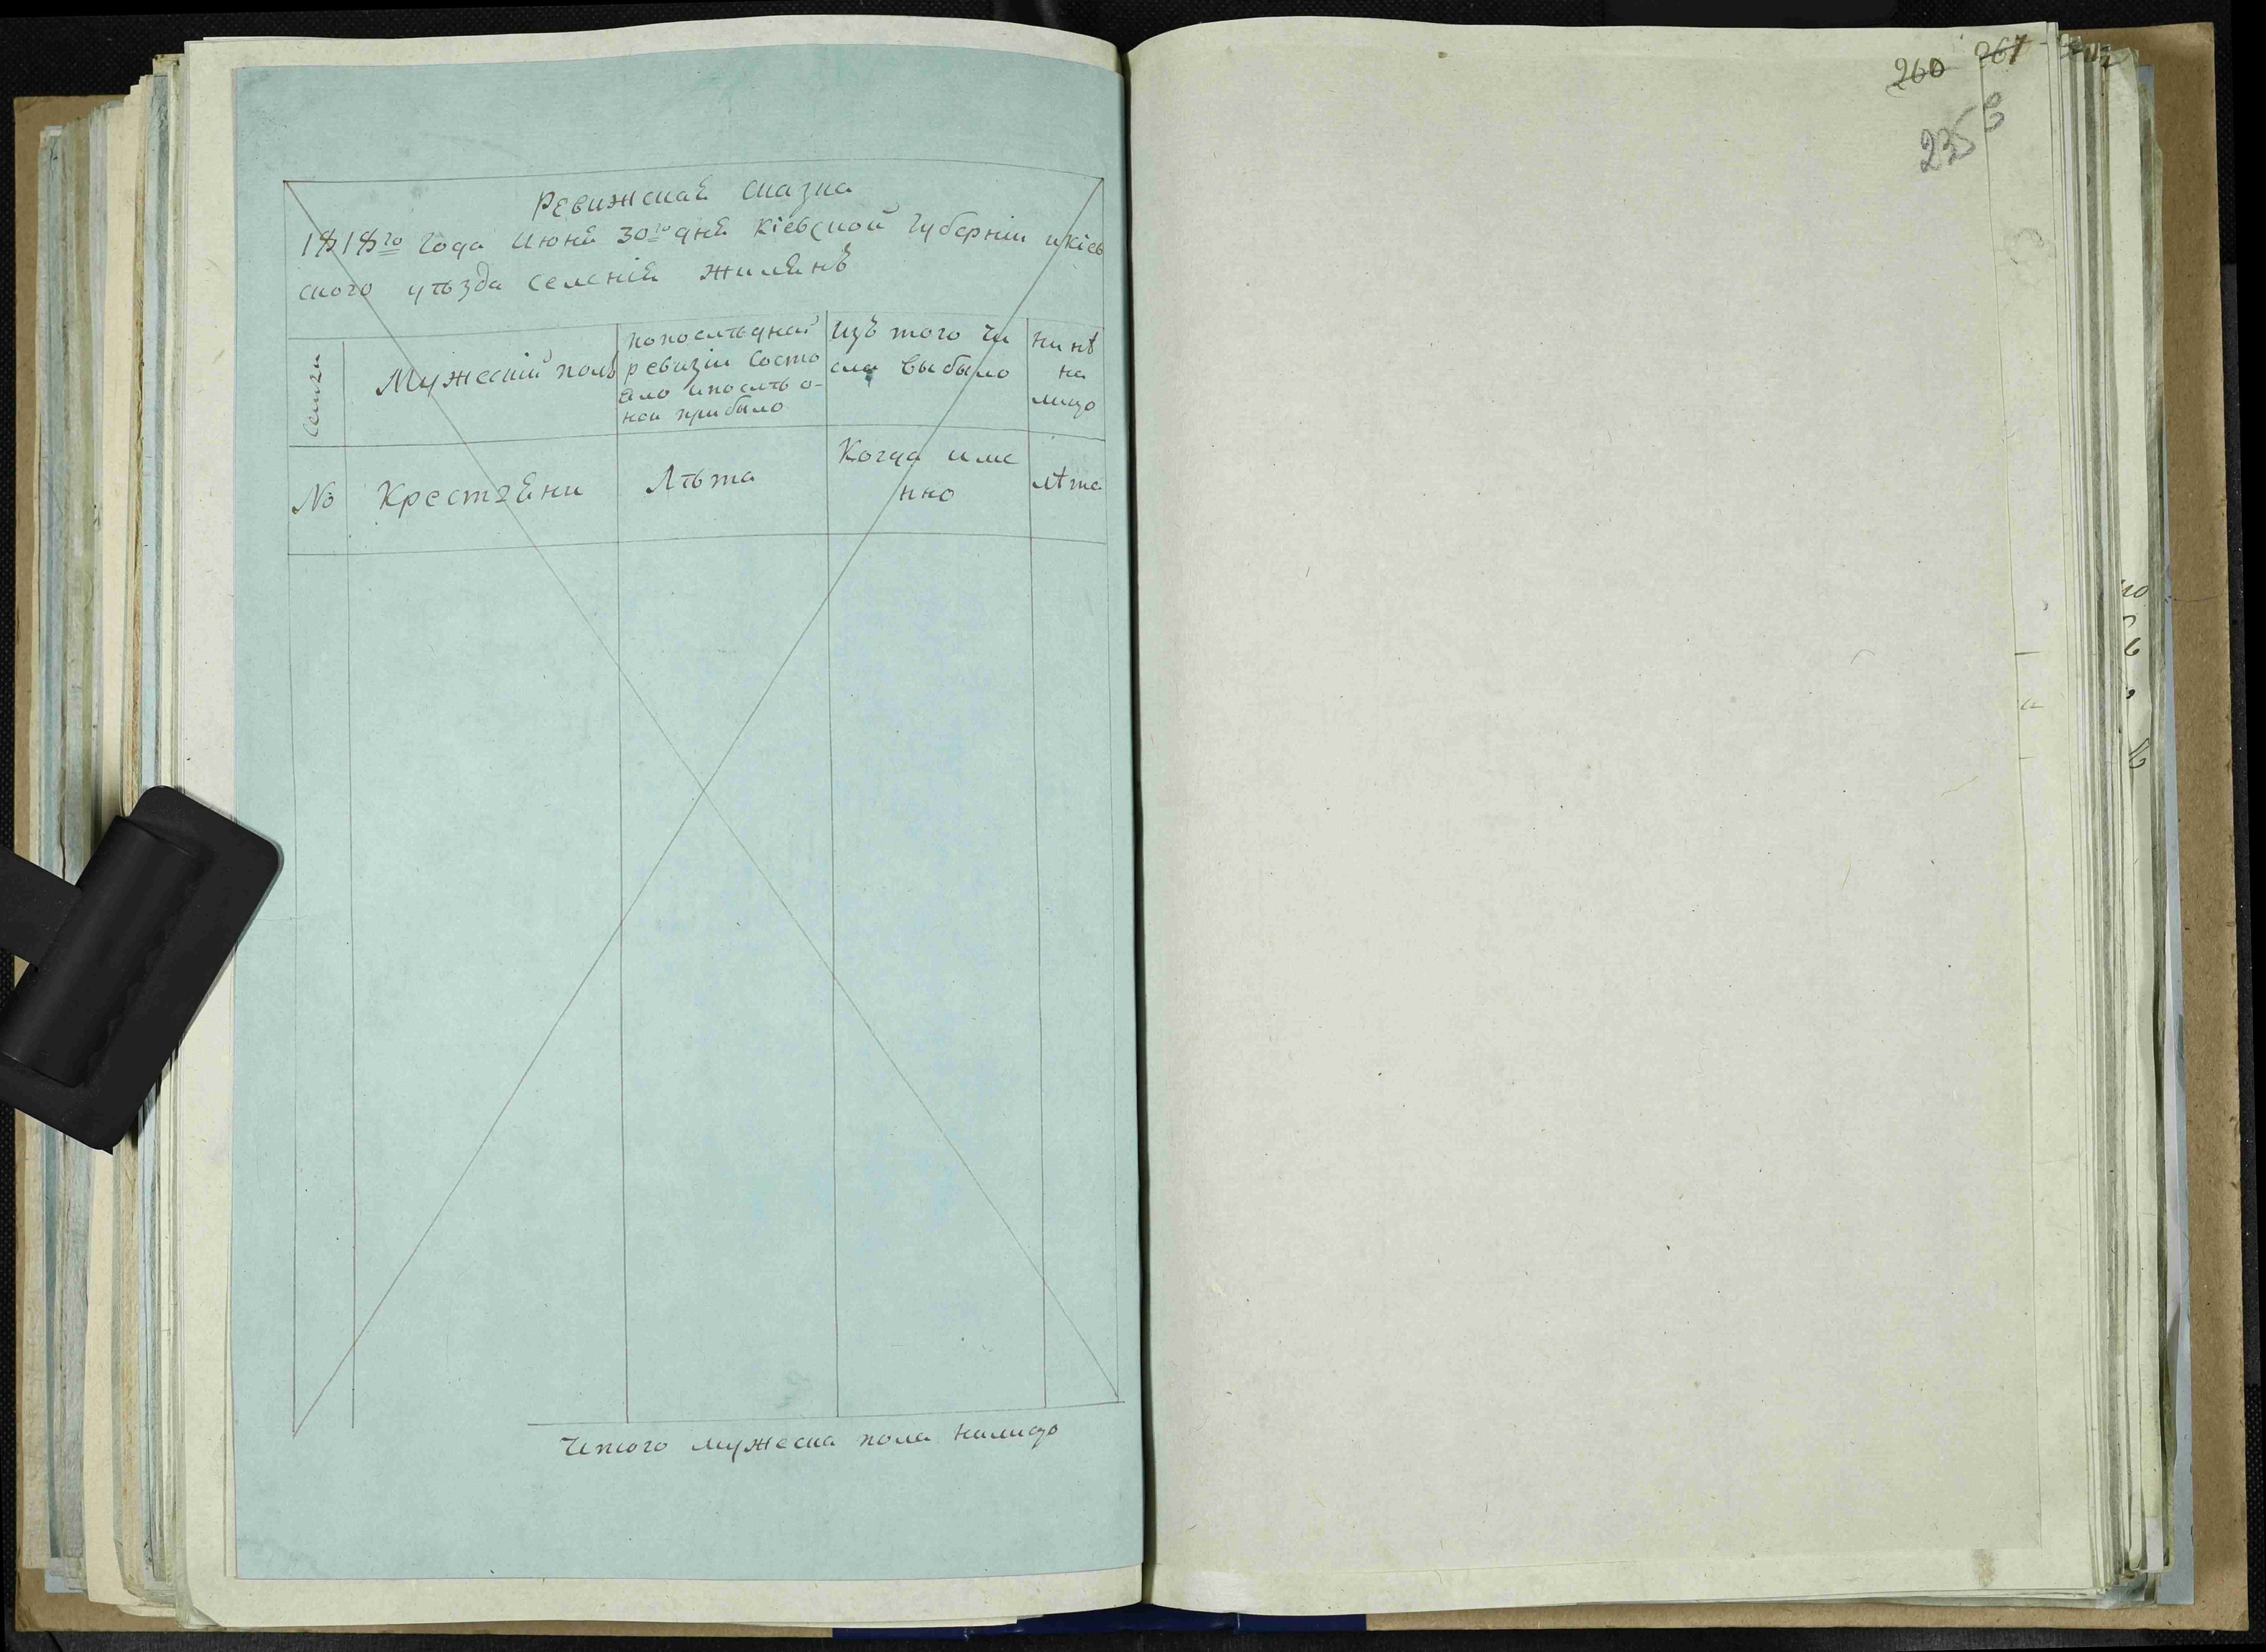 Ревижскаѣ сказка
1818го года Июнѣ 30го днѣ Кіевской Губерніи и Кіев
ского уѣзда селеніѣ Жилѣнъ
Семги
Мужескій полъ
по последней
ревизіи состо
ѣло и после о-
ной прибыло
Изъ того чи
сла выбыло
Ни нѣ
на
лицо
№
Крестгѣни
Лѣта
Когда име
нно
лѣта
Итого мужеска пола налицо
260
261
235